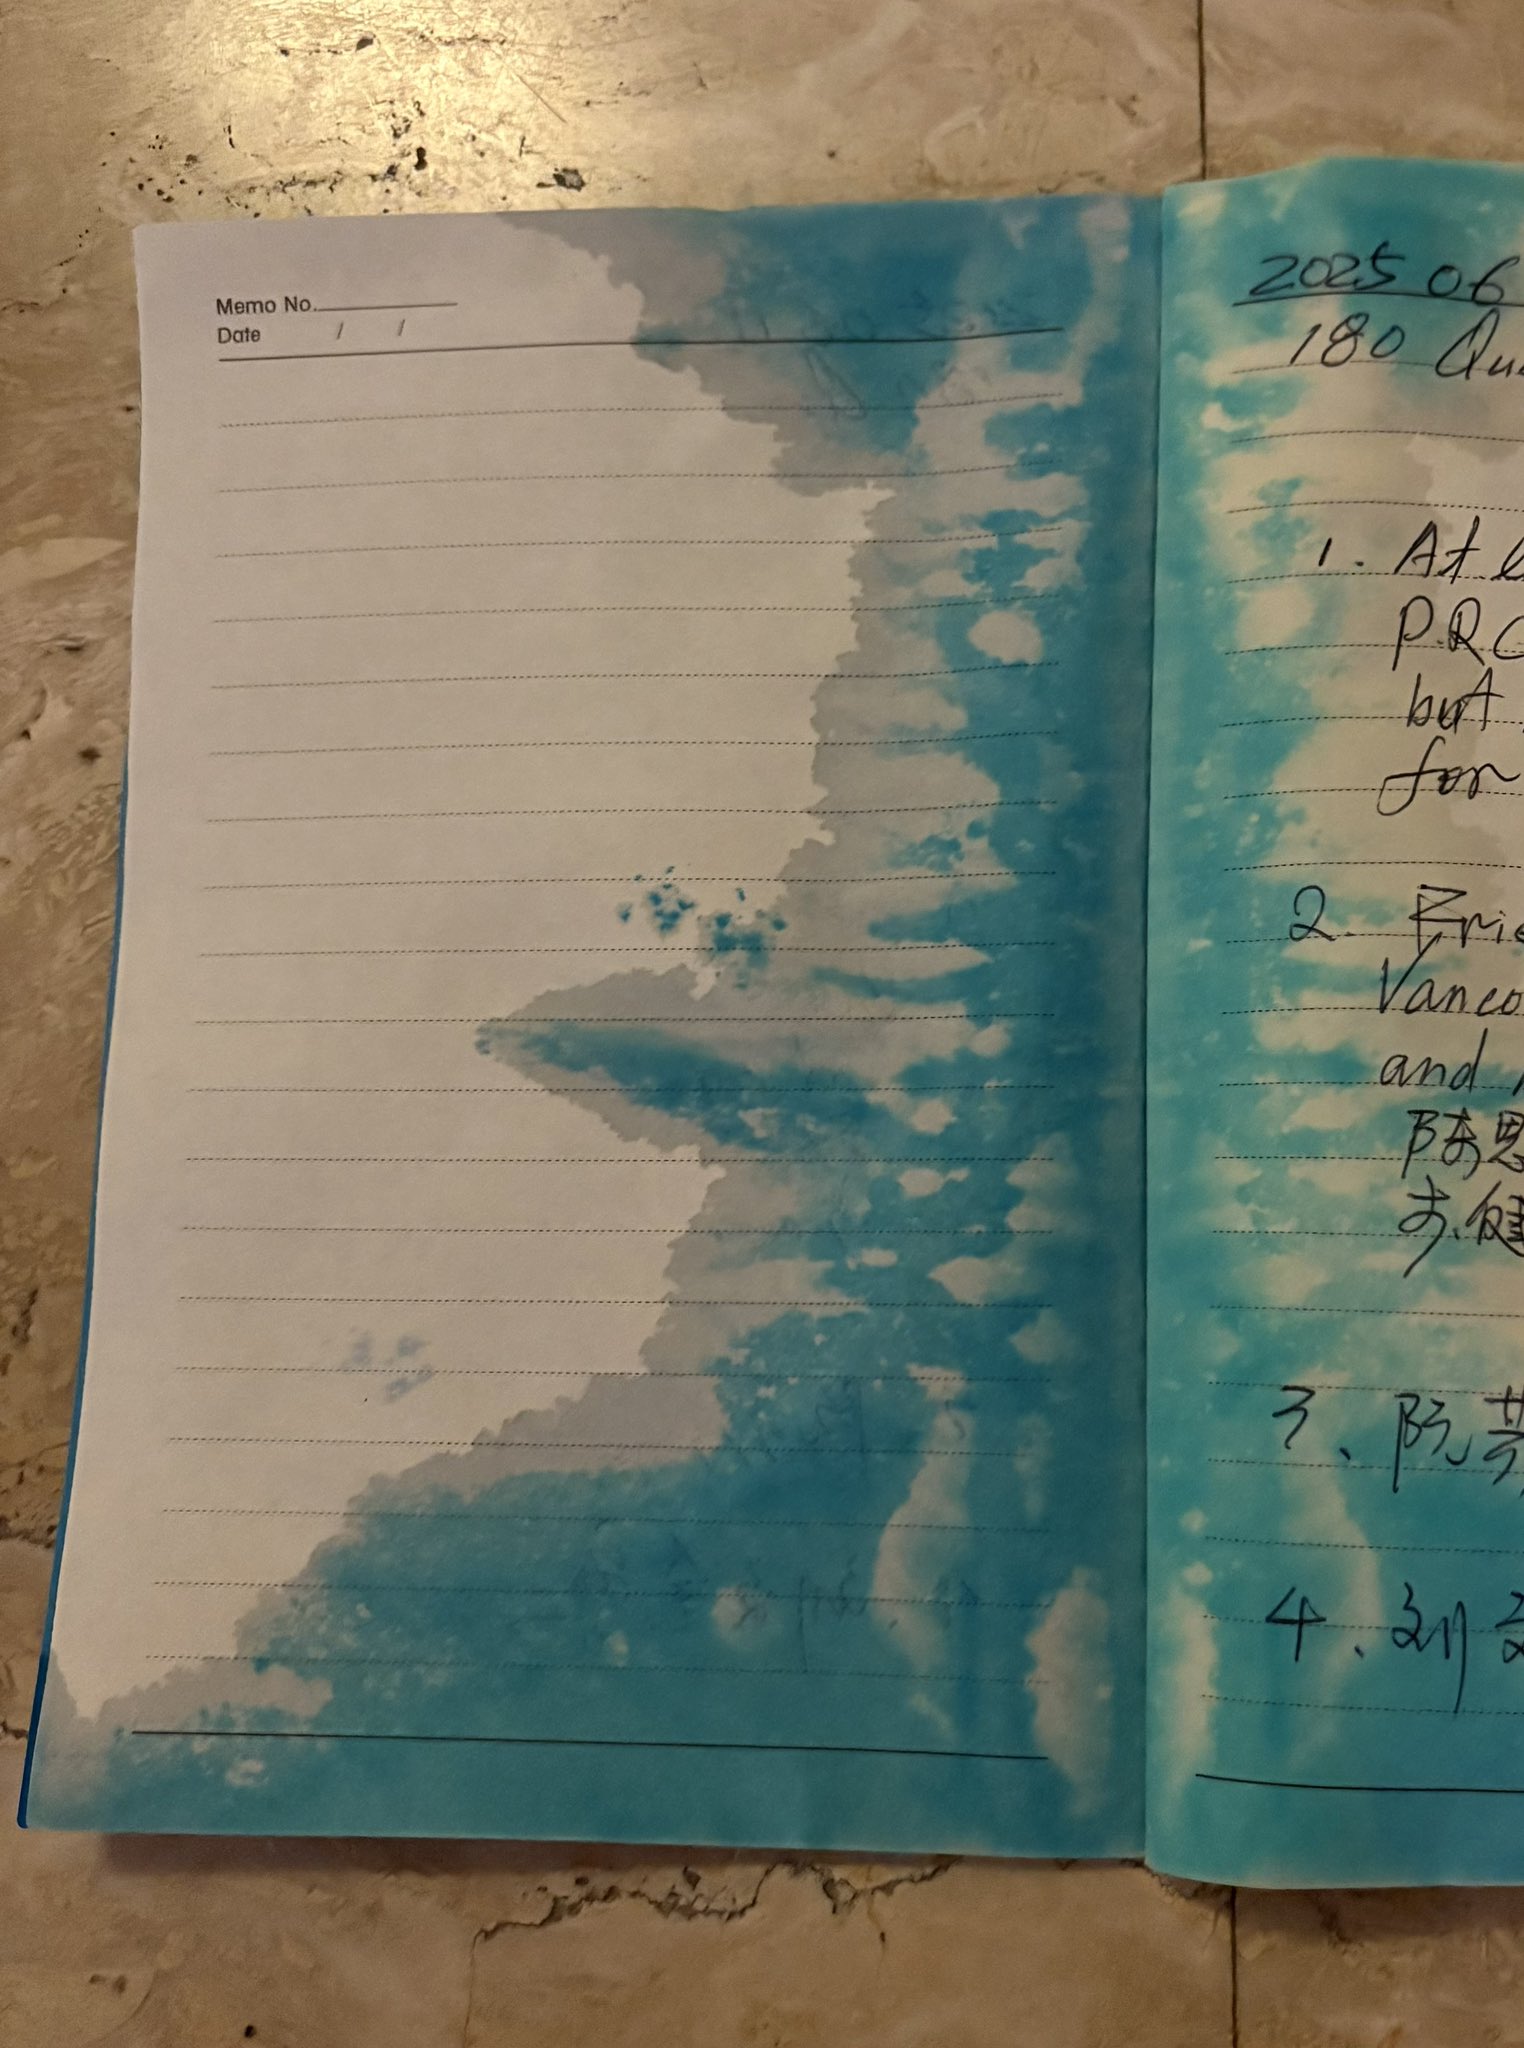 Memo No.
Date / /
2025 06
180 Qu
1. At
P.R.C
but
for
2. Frie
Vanco
and
陈恩
健
3、阮芳
4、刘